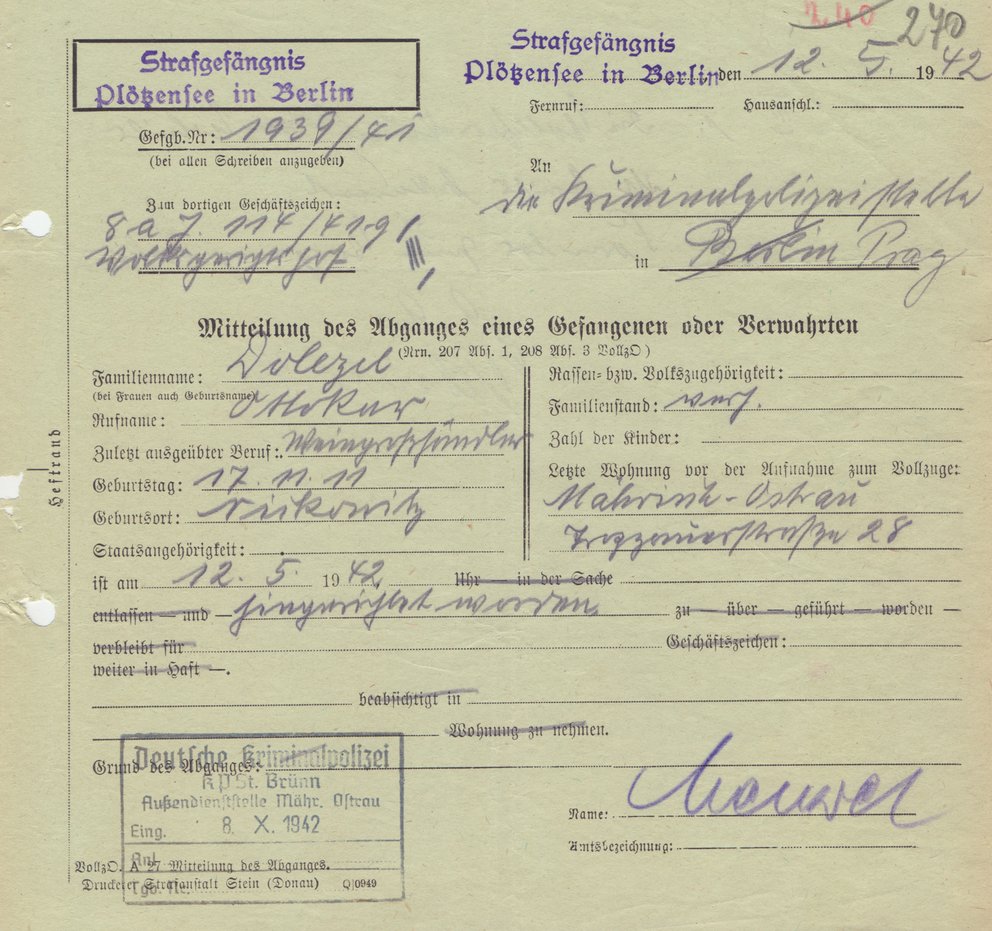 240 270
Strafgefängnis
Plötzensee in Berlin
Strafgefängnis
Plötzensee in Berlin den 12. 5. 1942
Fernruf: Hausanschl.:
Gefgb.Nr: 1939/41
(bei allen Schreiben anzugeben)
An
die Kriminalpolizeistelle
Zum dortigen Geschäftszeichen:
8 a J. 114/41 g
Volksgerichtshof
in Berlin Prag
Mitteilung des Abganges eines Gefangenen oder Verwahrten
(Nrn. 207 Abs. 1, 208 Abs. 3 VollzO)
Familienname: Dolezel
(bei Frauen auch Geburtsname)
Rufname: Ottokar
Zuletzt ausgeübter Beruf: Weingroßhändler
Geburtstag: 17. 11. 11
Geburtsort:
Staatsangehörigkeit:
Rassen- bzw. Volkszugehörigkeit:
Familienstand: verh.
Zahl der Kinder:
Letzte Wohnung vor der Aufnahme zum Vollzuge:
Mährisch-Ostrau
28
ist am 12. 5. 1942 Uhr — in der Sache
entlassen — und hingerichtet worden. zu — über — geführt — worden —
verbleibt für Geschäftszeichen:
weiter in Haft —.
beabsichtigt in
Wohnung zu nehmen.
Grund des Abganges:
Deutsche Kriminalpolizei
KPSt. Brünn
Außendienststelle Mähr. Ostrau
Eing. 8. X. 1942
Anl.
Tgb. Nr.
Name:
Amtsbezeichnung:
VollzO. A 27 Mitteilung des Abganges.
Druckerei Strafanstalt Stein (Donau) Q/0949
Heftrand